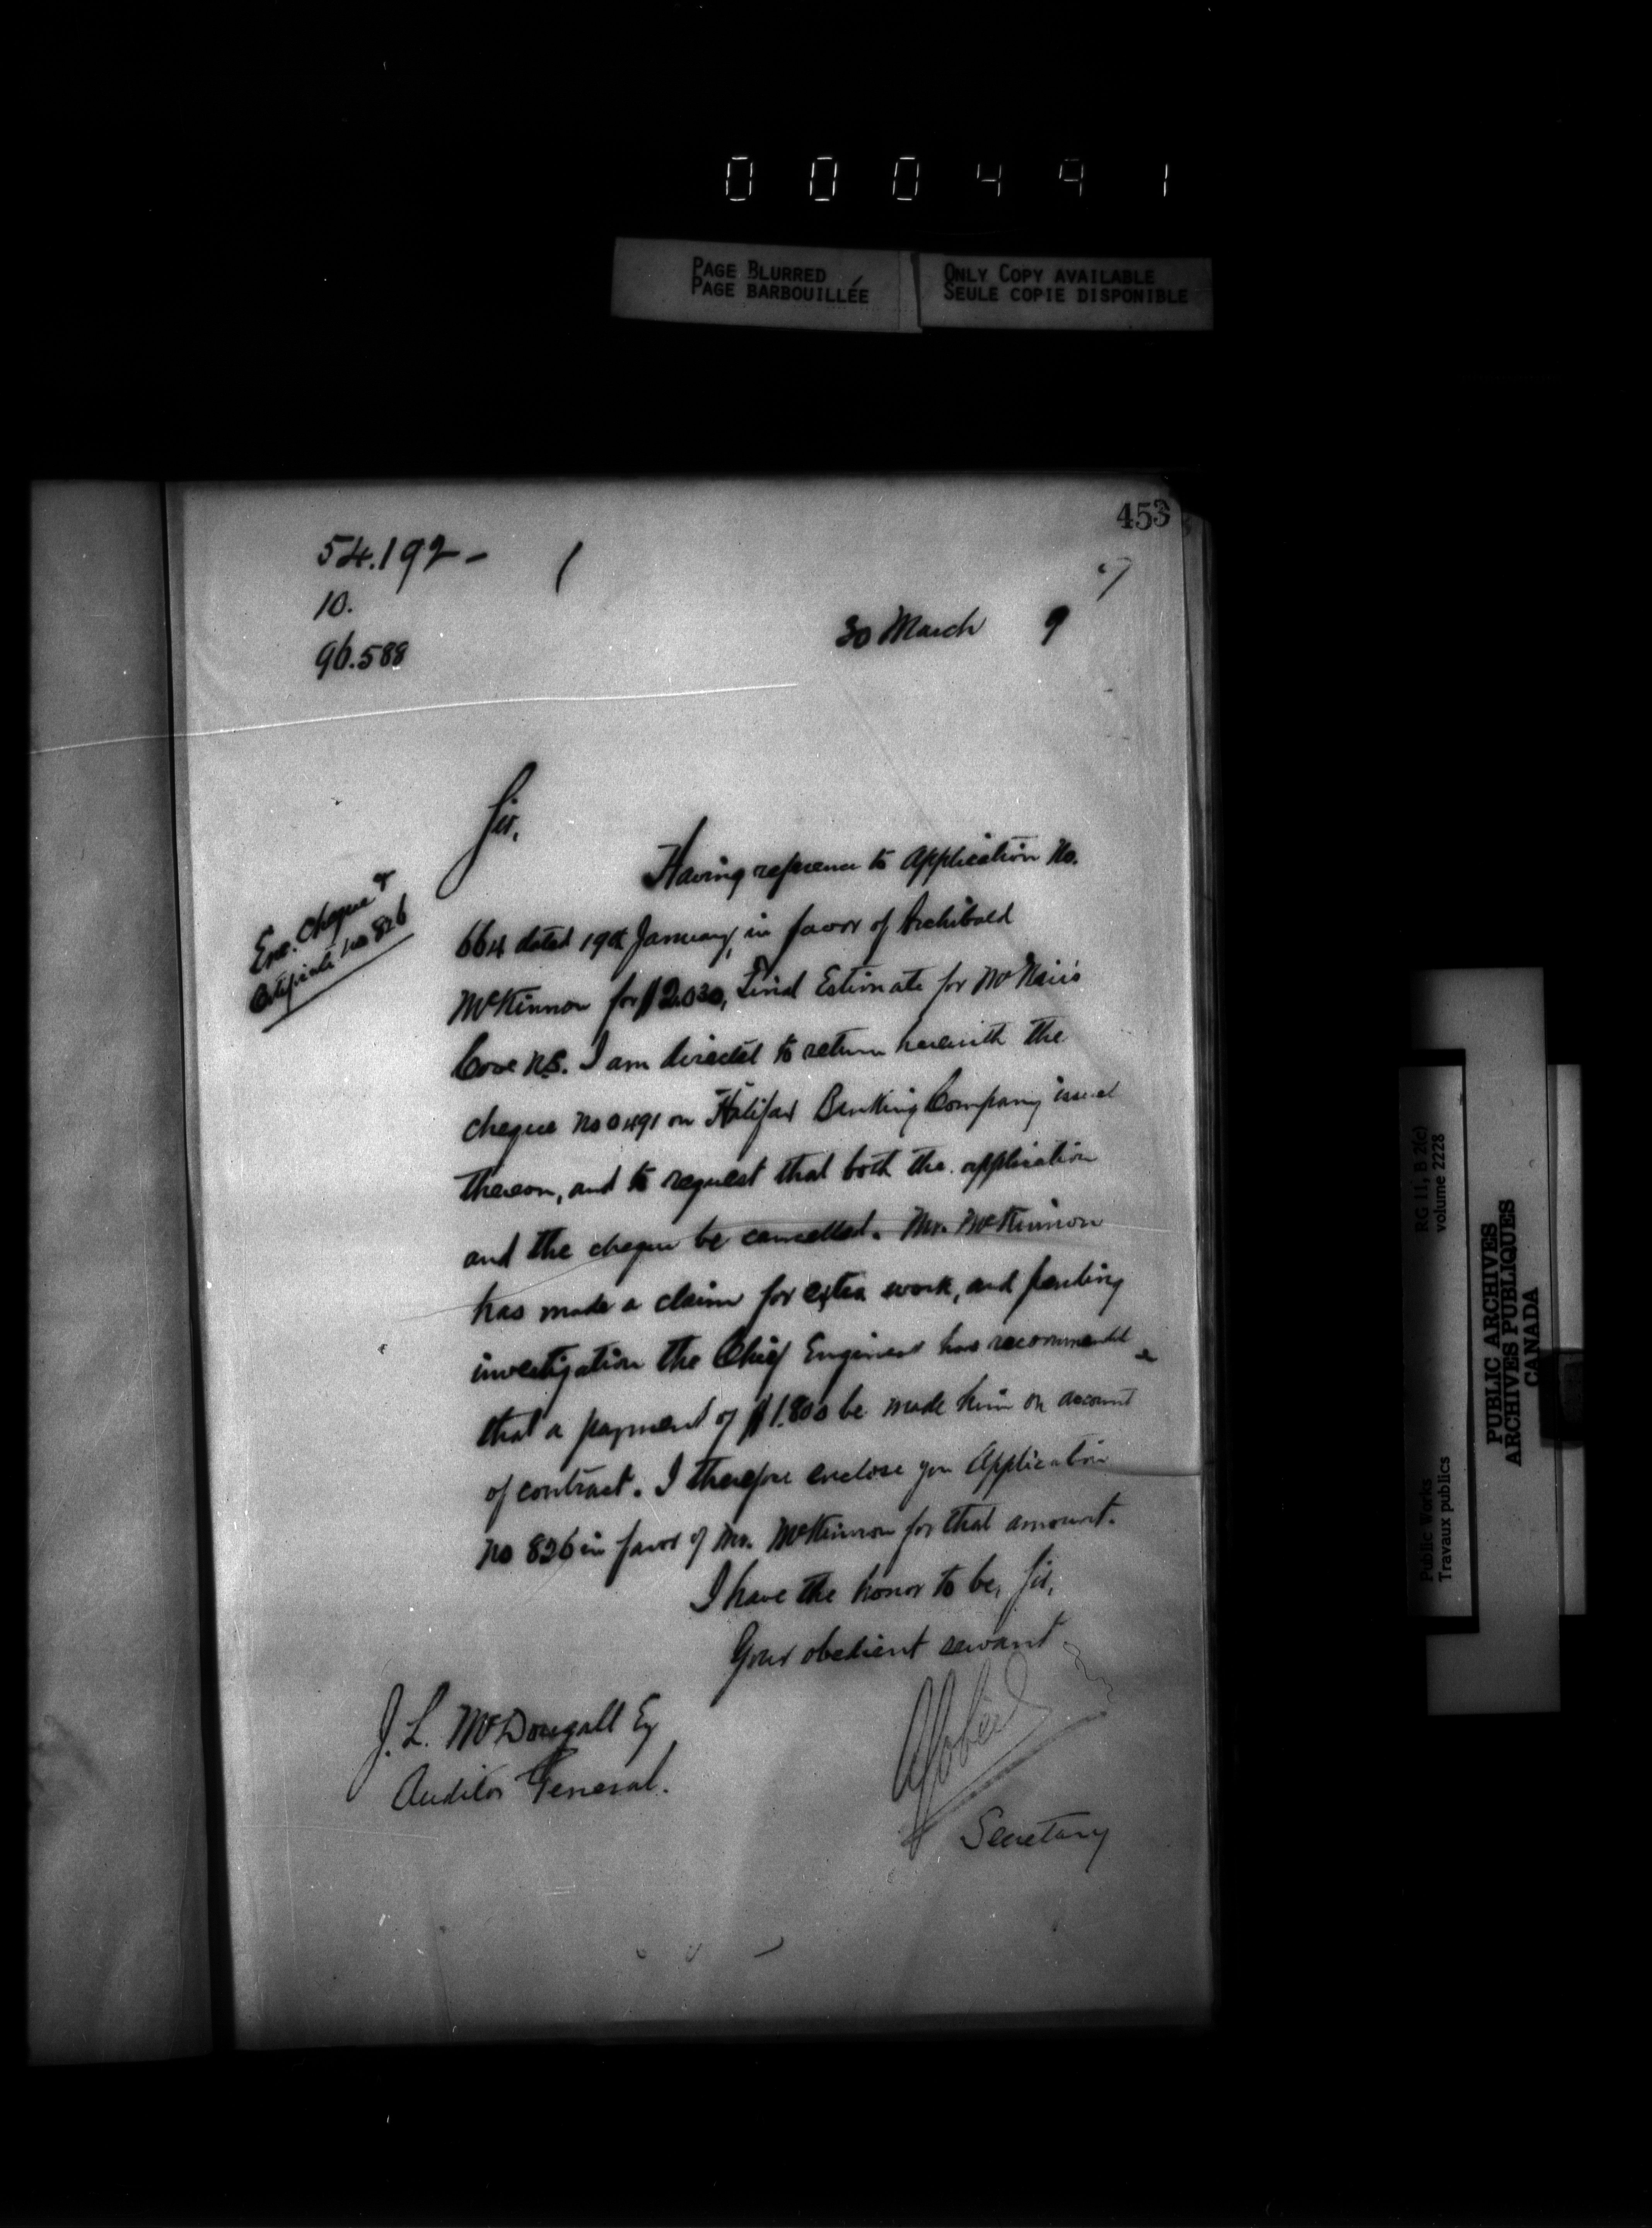 000491
PAGE BLURRED
PAGE BARBOUILLÉE
ONLY COPY AVAILABLE
SEULE COPIE DISPONIBLE
453
54.192 -
10.
96.588
30 March 9
Sir,
Enc. Cheque &
Certificate No 826
Having reference to Application No.
664 dated 19th January, in favor of Archibald
McKinnon for $2.030, Final Estimate for McNair's
Cove N.S. I am directed to return herewith the
cheque No 0491 on Halifax Banking Company issued
thereon, and to request that both the application
and the cheque be cancelled. Mr. McKinnon
has made a claim for extra work, and pending
investigation the Chief Engineer has recommended
that a payment of $1.800 be made him on account
of contract. I therefore enclose you Application
No 826 in favor of Mr. McKinnon for that amount.
I have the honor to be, Sir,
Your obedient servant
J. L. McDougall Esq
Auditor General.
Secretary
RG 11, B 2(c)
volume 2228
Public Works
Travaux publics
PUBLIC ARCHIVES
ARCHIVES PUBLIQUES
CANADA